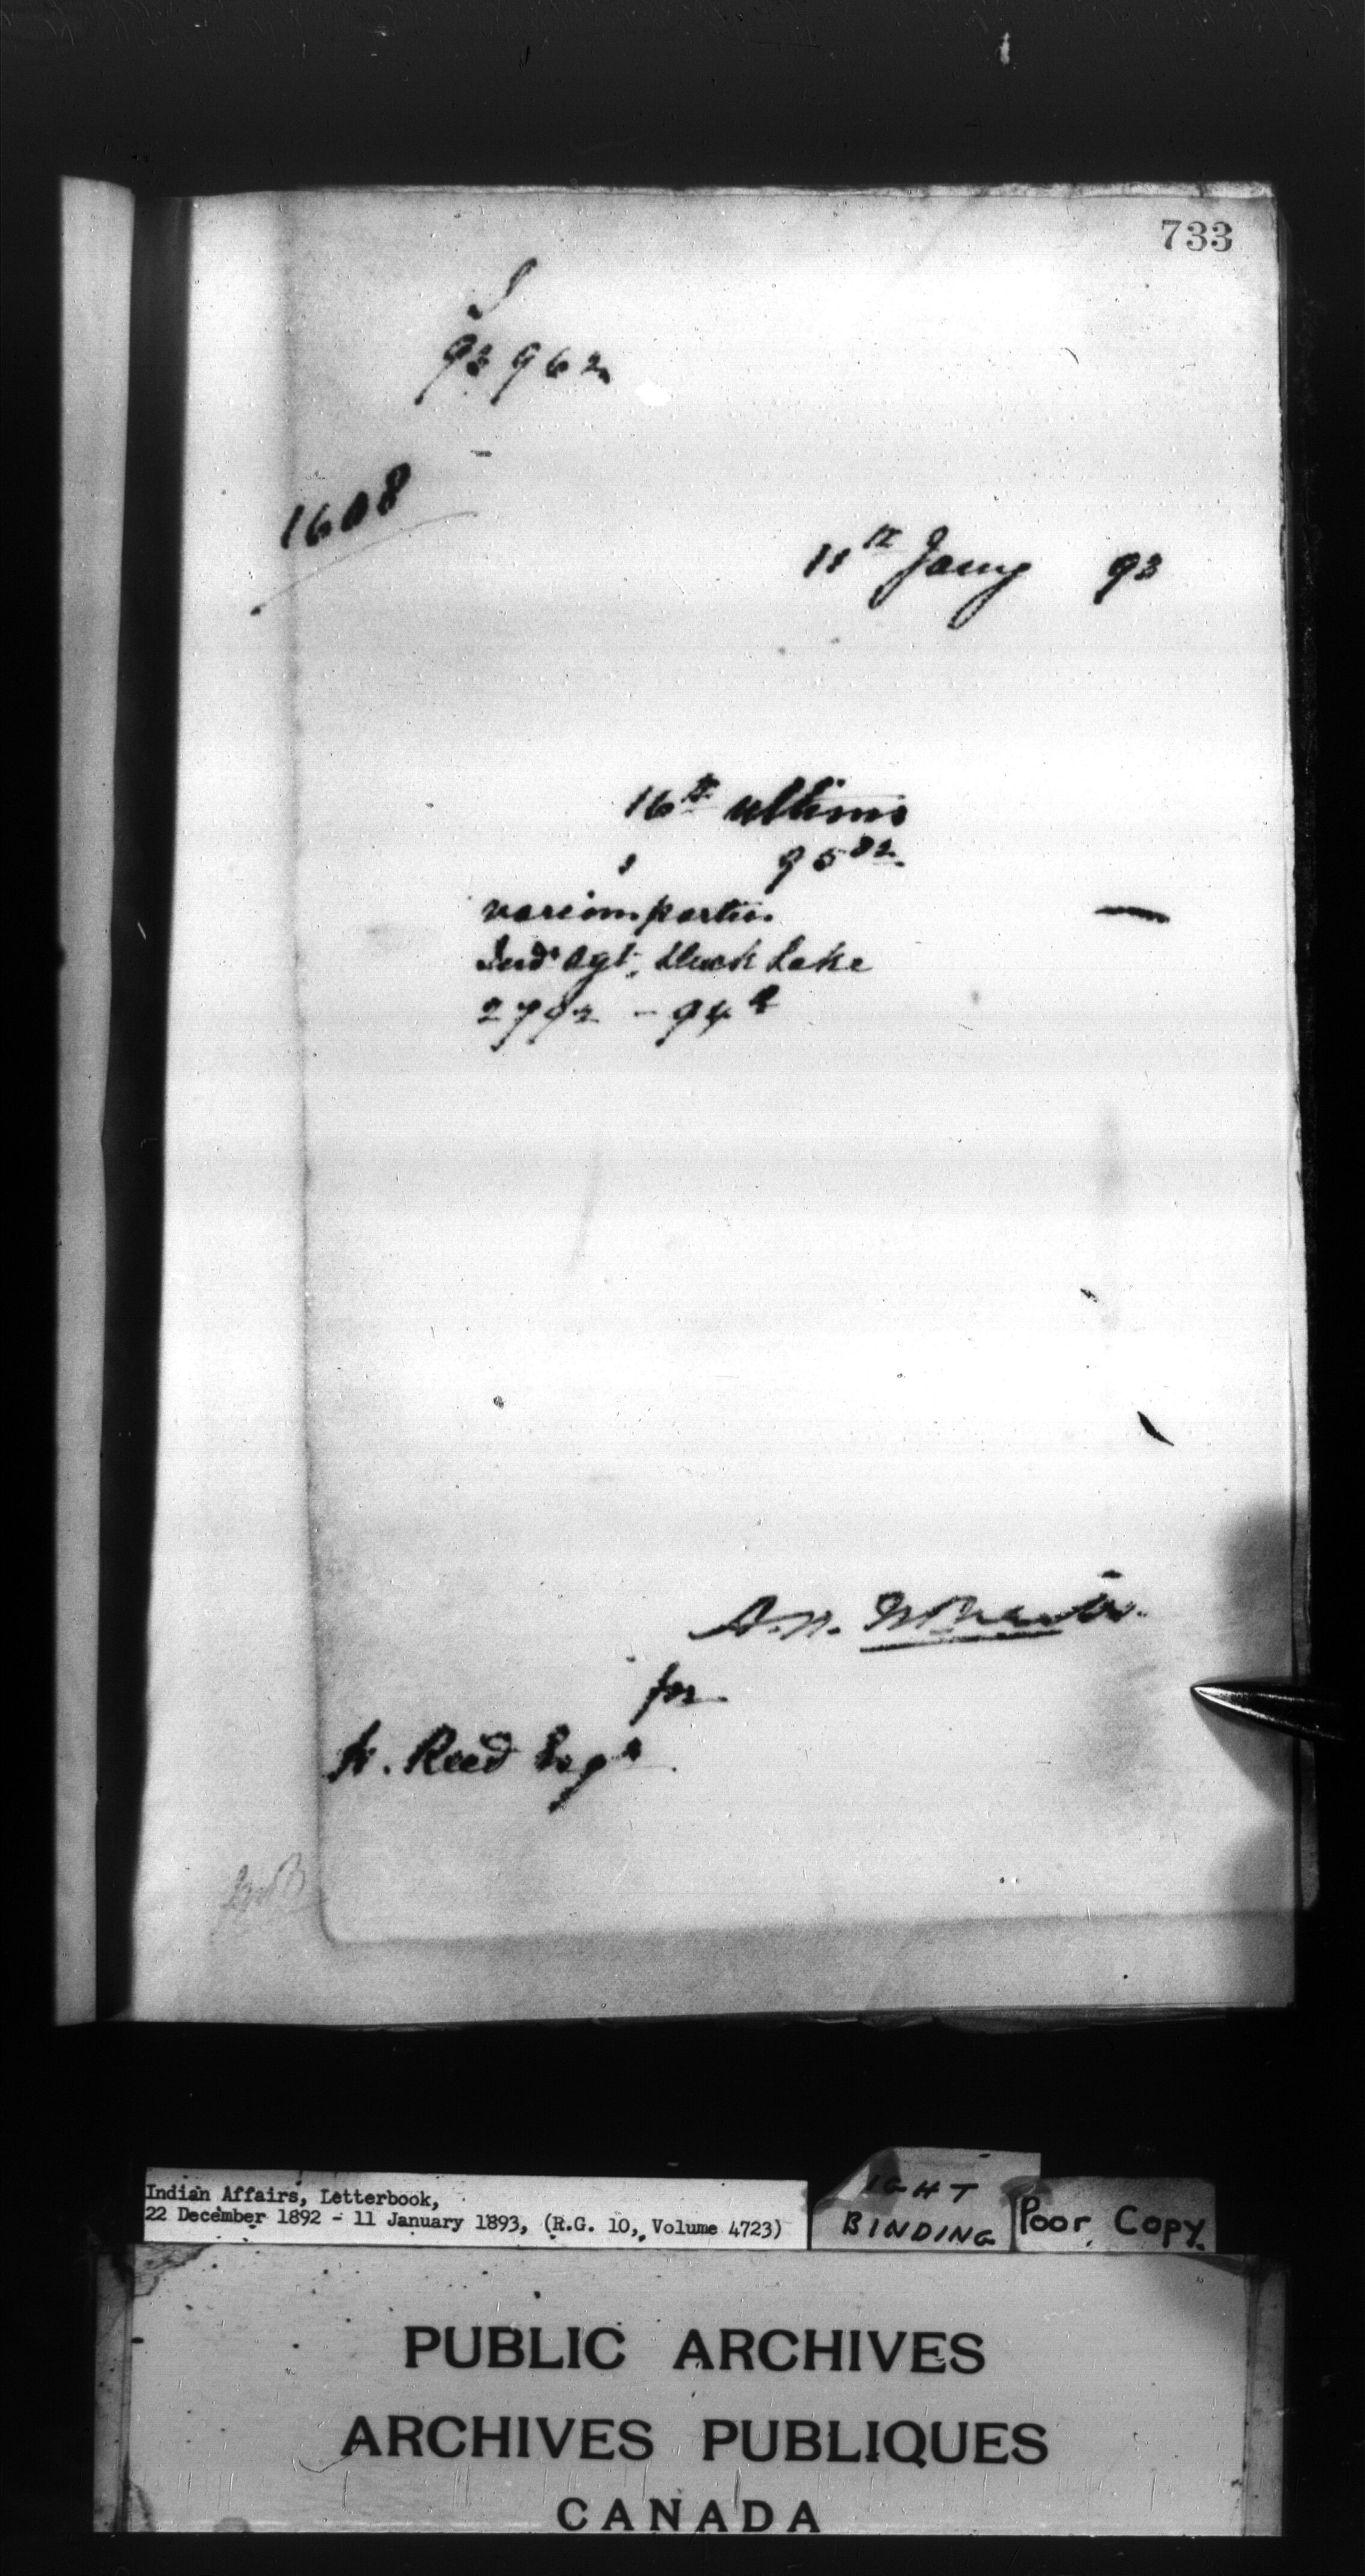 733
93962
1608
11th Jany 93
16th ultimo
95 82
various parties
Ind. Agt. Duck Lake
2792 - 94
A.N. McNeill
for
H. Reed Esqr
Indian Affairs, Letterbook,
22 December 1892 - 11 January 1893, (R.G. 10, Volume 4723)
IGHT
BINDING
Poor Copy.
PUBLIC ARCHIVES
ARCHIVES PUBLIQUES
CANADA